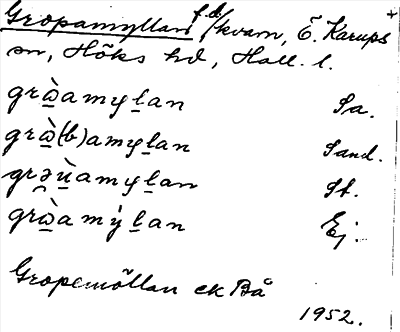 Gropamyllan f.d./kvarn, Ö. Karups
sn, Höks hd, Hall. l.
grὼ̲amyl̲an Sa.
grὼ̲(b)amyl̲an Sand.
grə̯ṳ̀amyl̲an St.
grὼ̲amẏl̲an Ej.
Gropemöllan ek Bå
1952.